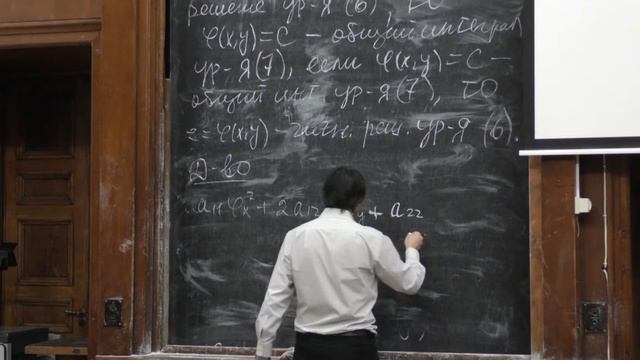 решение ур-я (6), то
φ(x,y)=C – общий интеграл
ур-я (7), если φ(x,y)=C –
общий инт. ур-я (7), то
z=φ(x,y) – частн. реш. ур-я (6).
Д-во
a₁₁φₓ² + 2a₁₂ y + a₂₂